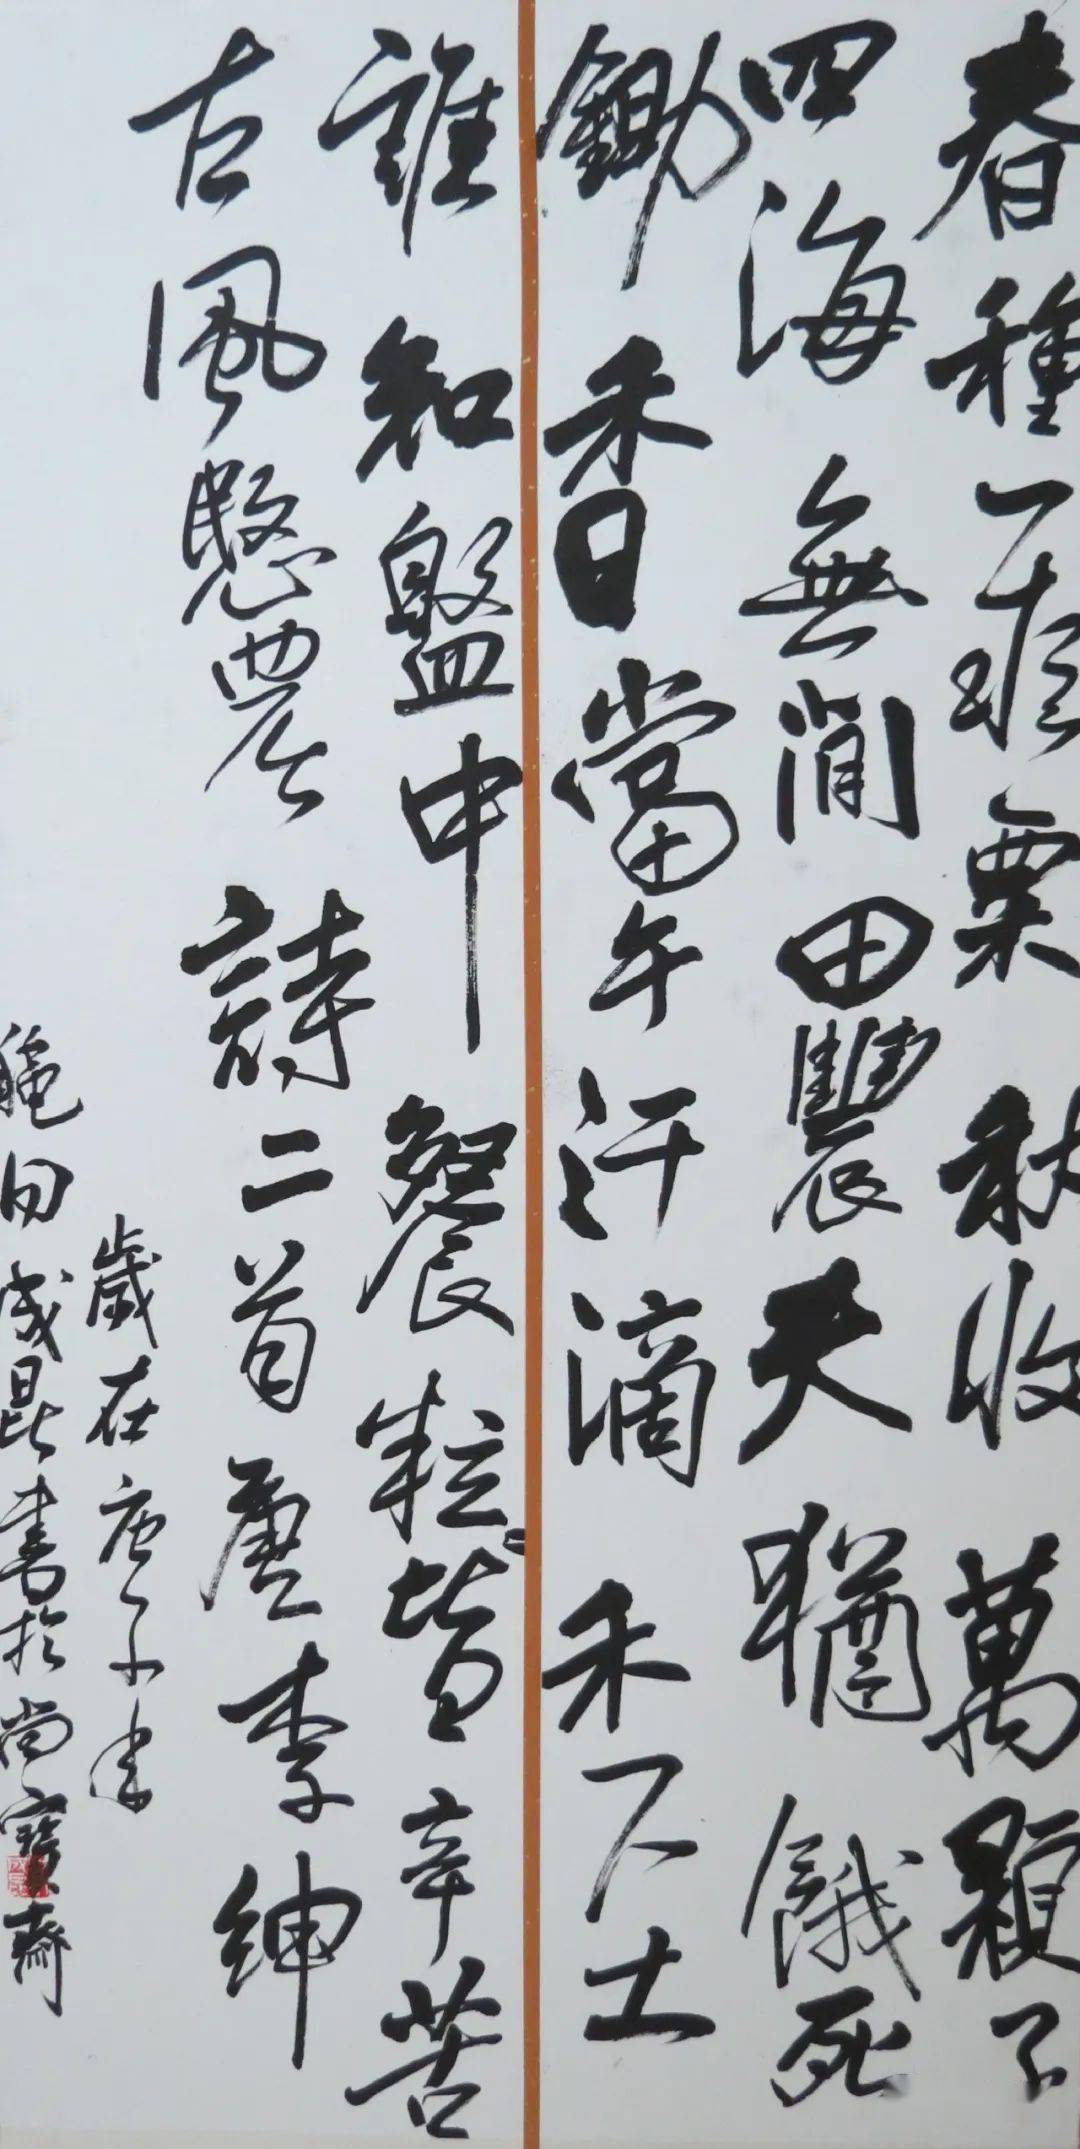 春種一顆粟秋收萬顆子
四海無閒田農夫猶餓死
鋤禾日當午汗滴禾下土
誰知盤中餐粒粒皆辛苦
古風憫農詩二首唐李紳
歲在庚子年
龜田成昆書於尚寶齋